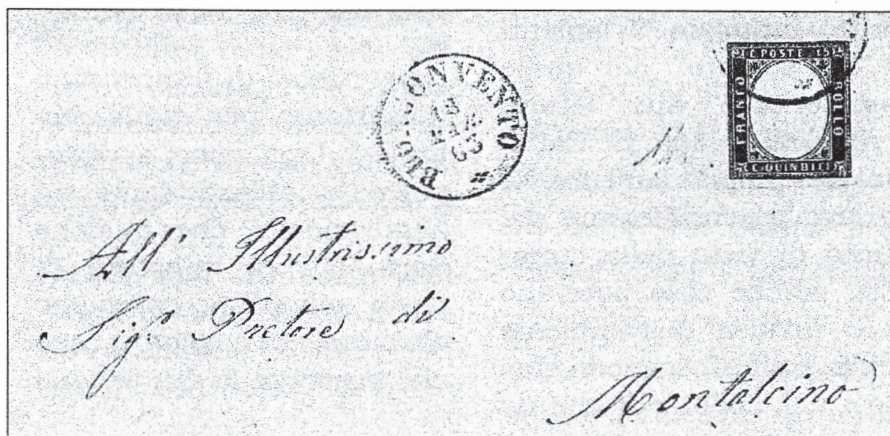 BUONCONVENTO
18
MAR
63
C. POSTE 15
FRANCO
BOLLO
C. QUINDICI
All' Illustrissimo
Sigr. Pretore di
Montalcino